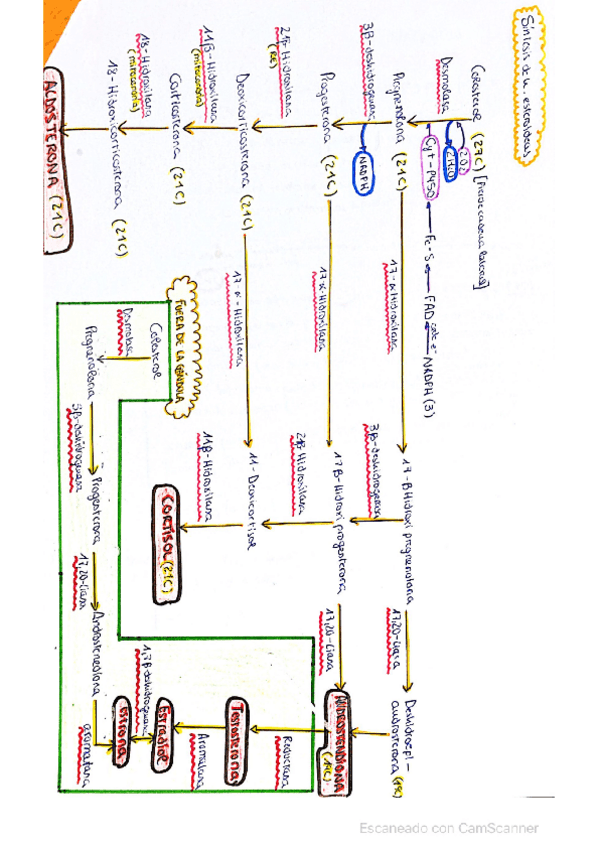 Síntesis de h. esteroideas
Colesterol (27C) [Pierde cadena lateral]
2O2
2H2O
Desmolasa
Cyt-P450
Fe-S
FAD
cede e-
NADPH (3)
Pregnenolona (21C)
17-α-Hidroxilasa
17-β Hidroxi pregnenolona
17,20-Liasa
Dehidroepi-
androsterona (19C)
3β-deshidrogenasa
NADPH
3β-deshidrogenasa
Progesterona (21C)
17-α-Hidroxilasa
17β-Hidroxi progesterona
17,20-Liasa
ANDROSTENDIONA
(19C)
21β-Hidroxilasa
(RE)
21β-Hidroxilasa
Reductasa
Deoxicorticosterona (21C)
17-α-Hidroxilasa
11-Deoxicortisol
Testosterona
11β-Hidroxilasa
(mitocondria)
11β-Hidroxilasa
Aromatasa
Corticosterona (21C)
CORTISOL (21C)
Estradiol
18-Hidroxilasa
(mitocondria)
17β-deshidrogenasa
18-Hidroxicorticosterona (21C)
Estrona
ALDOSTERONA (21C)
FUERA DE LA GÓNDULA
Colesterol
Desmolasa
Pregnenolona
3β-deshidrogenasa
Progesterona
17,20-Liasa
Androstenediona
aromatasa
Escaneado con CamScanner